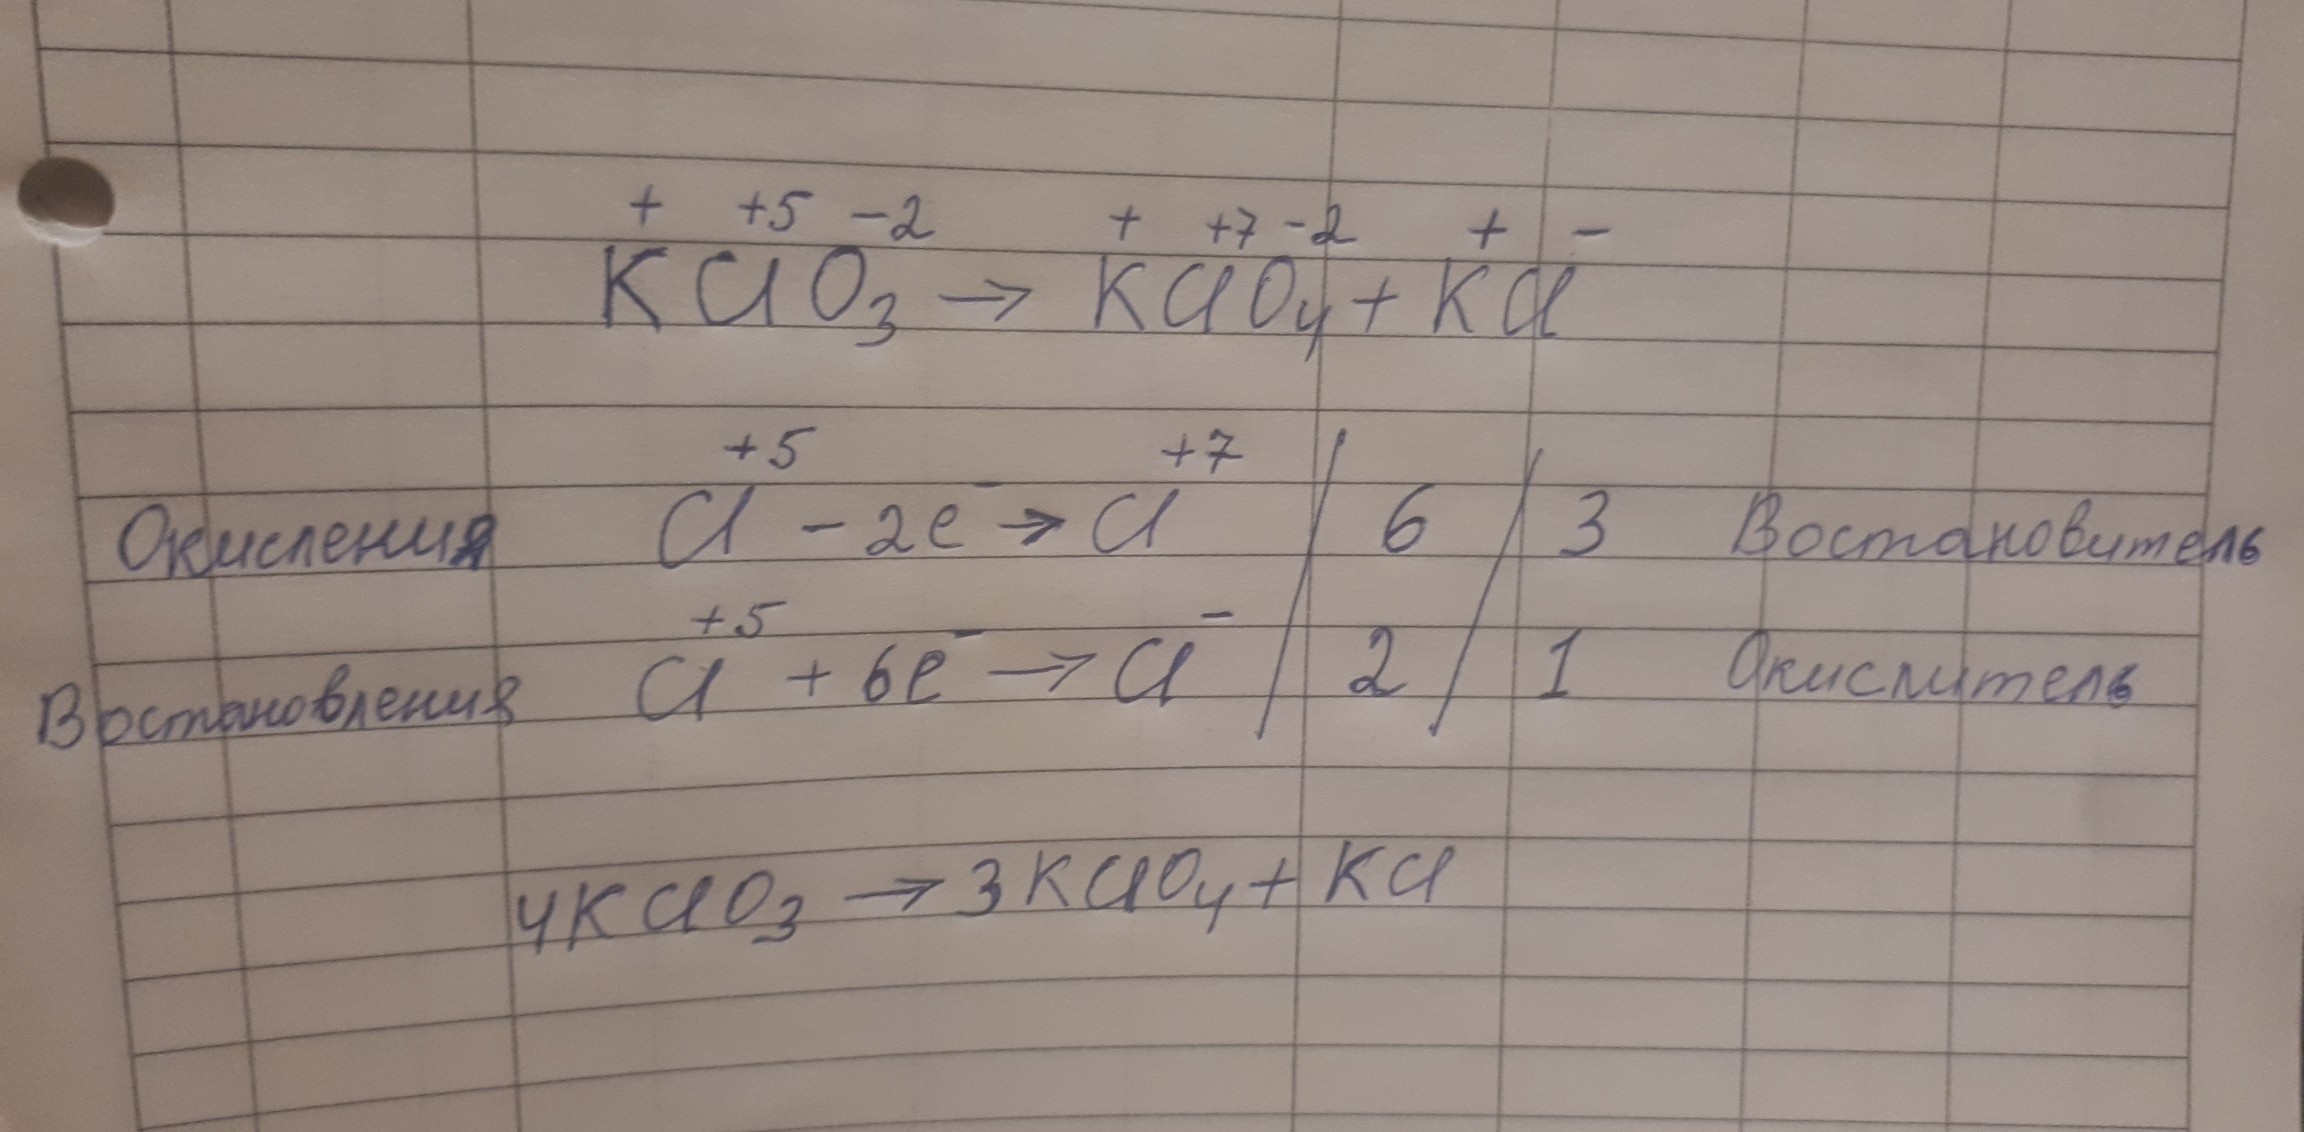 + +5 -2 + +7 -2 + -
KClO3 → KClO4 + KCl
+5 +7
Окисления Cl - 2e⁻ → Cl / 6 / 3 Востановитель
+5 -
Востановления Cl + 6e⁻ → Cl / 2 / 1 Окислитель
4KClO3 → 3KClO4 + KCl